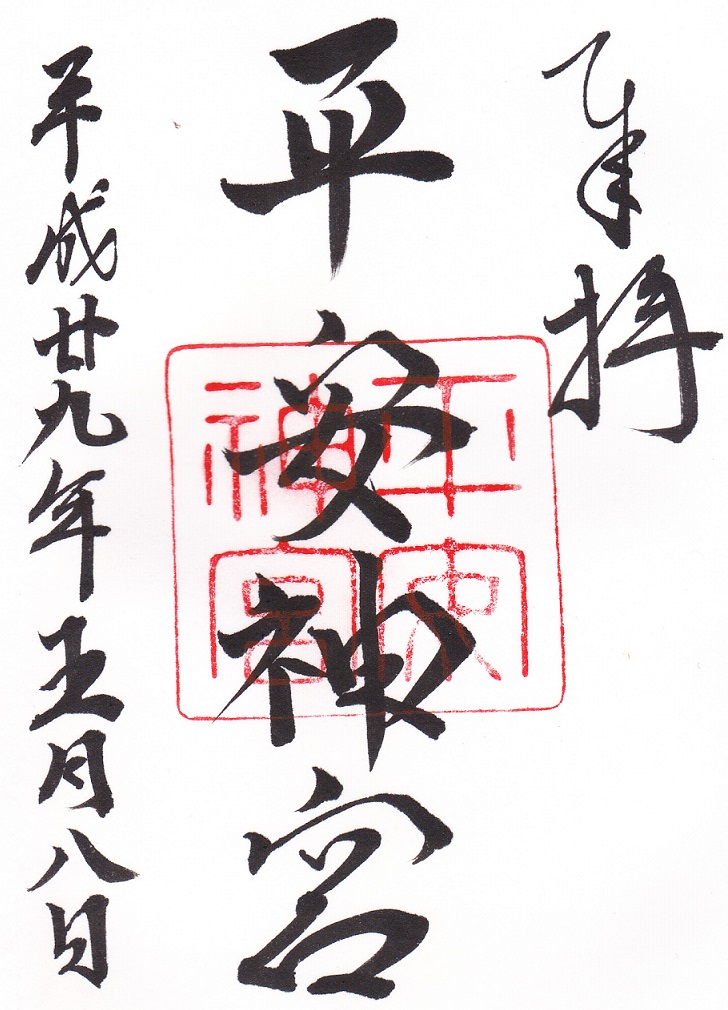 奉拝
平安神宮
平安神宮
平成廿九年五月八日